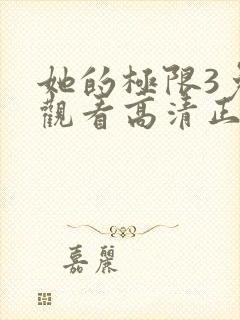 她的極限3
觀看高清正
嘉麗